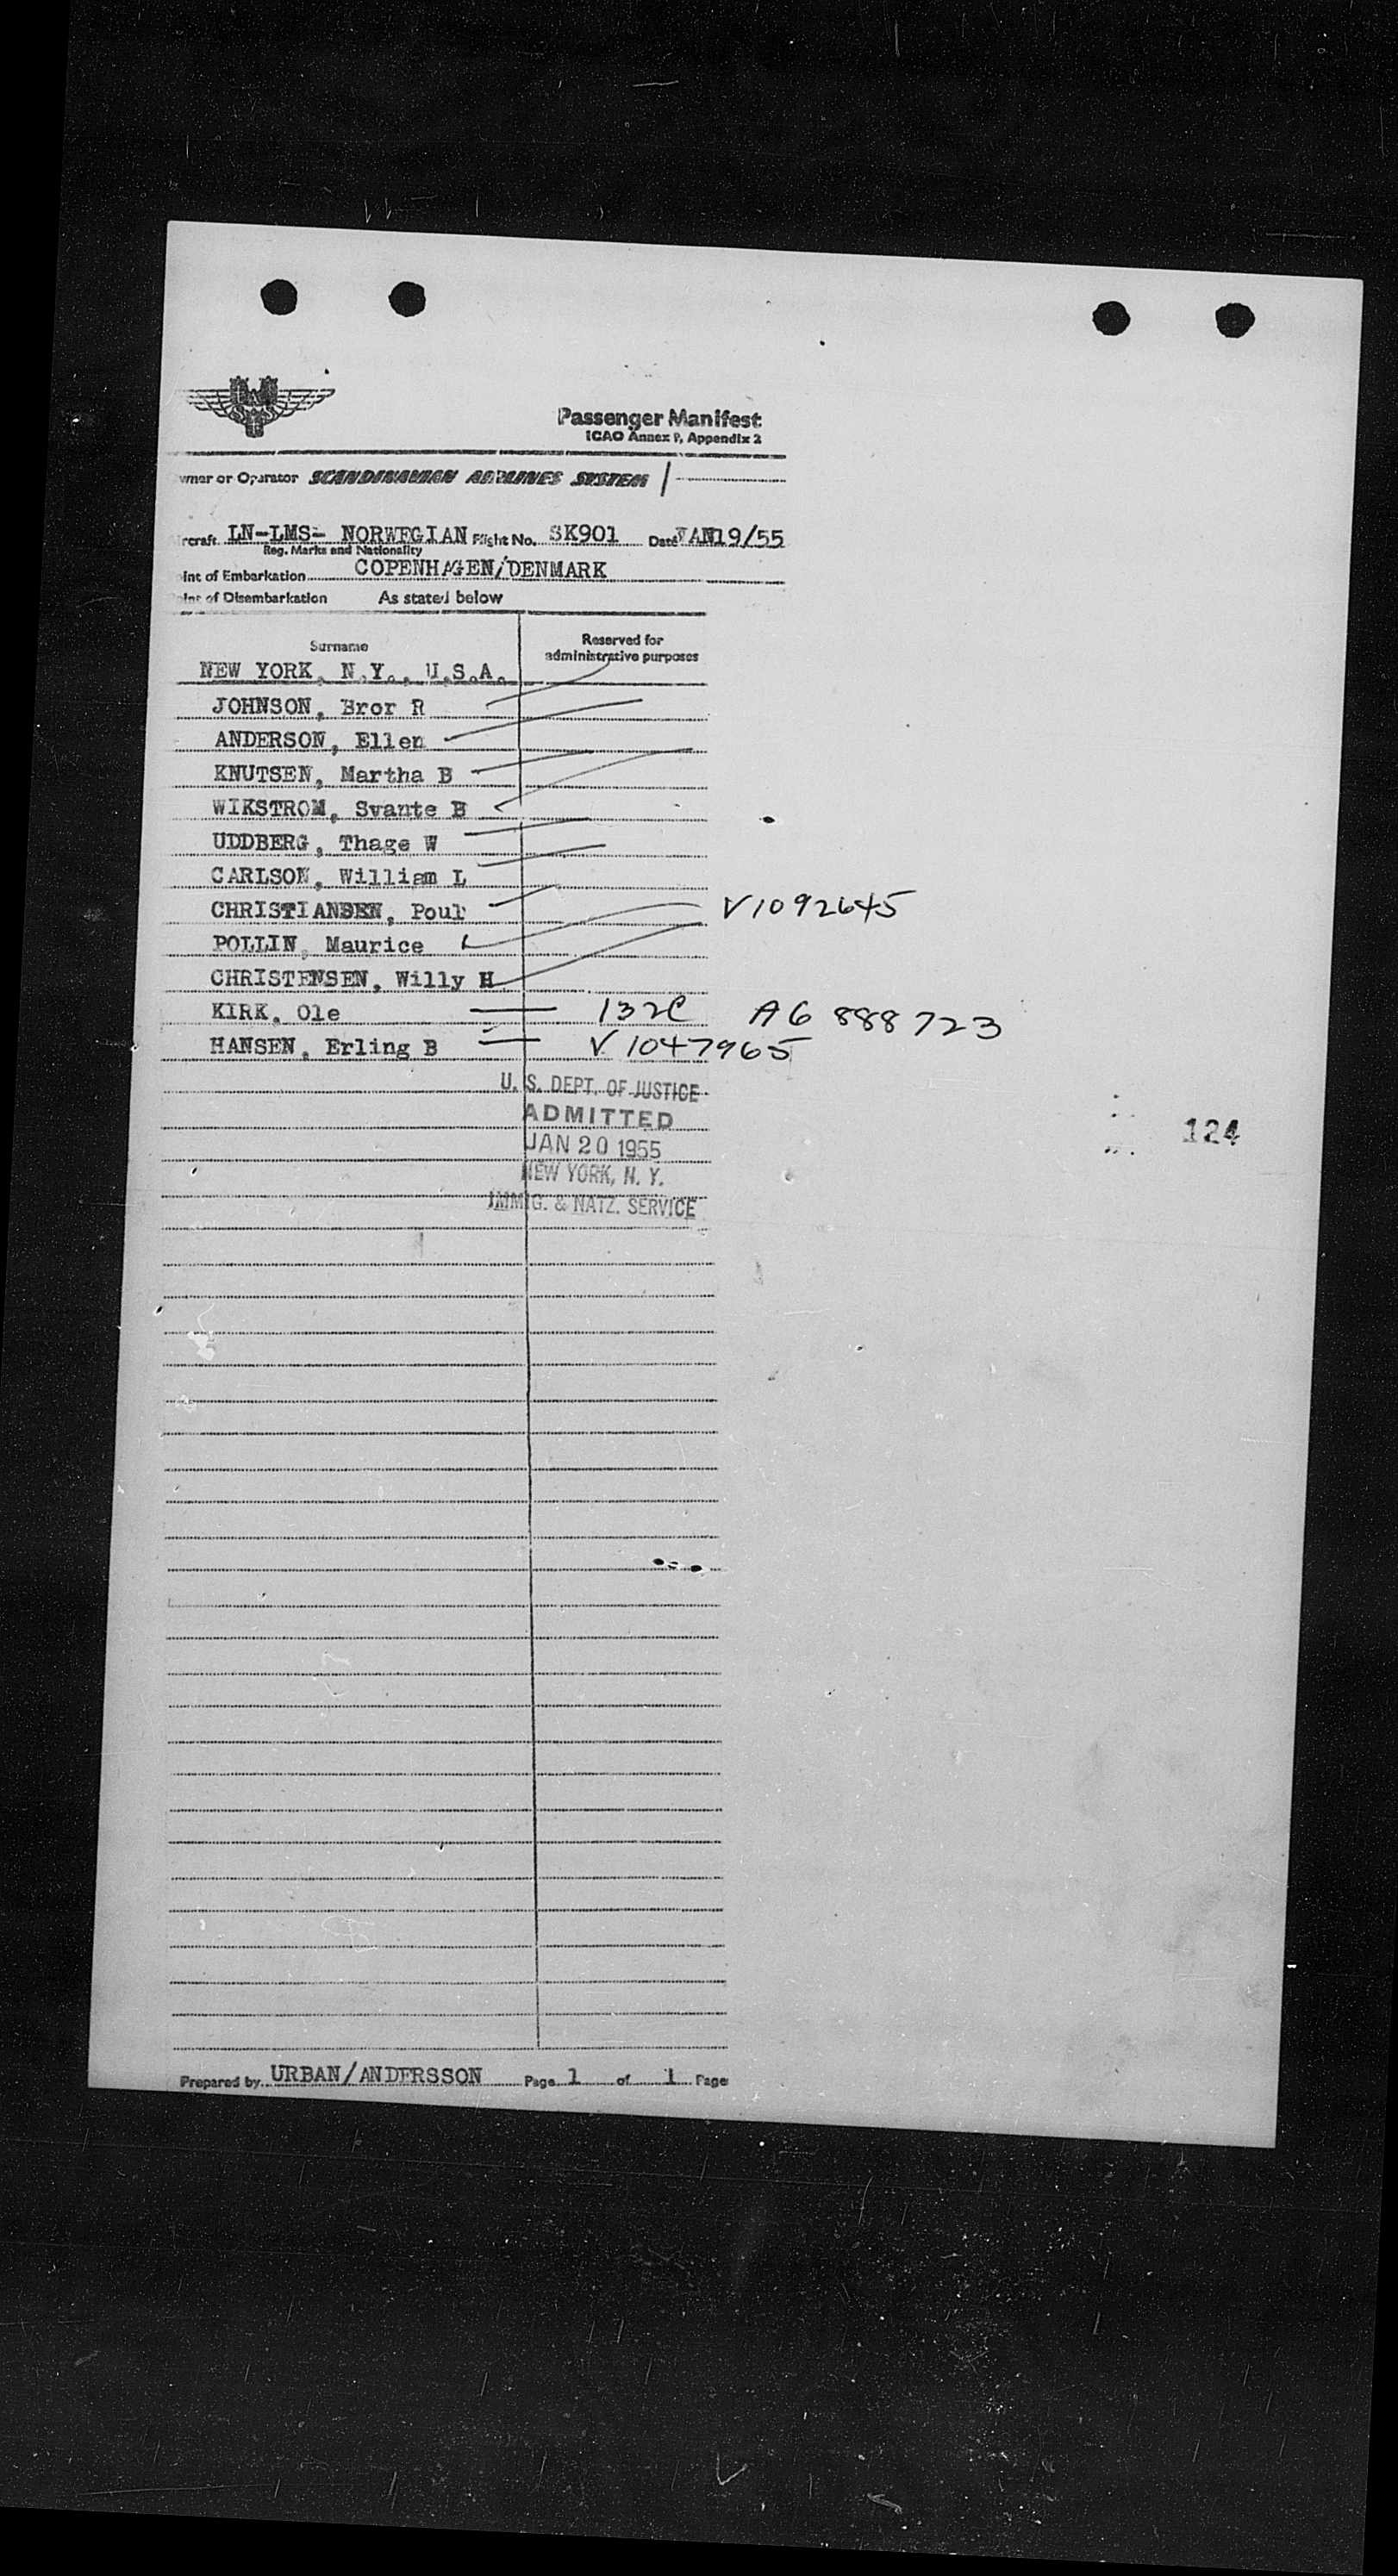 SAS
Passenger Manifest
ICAO Annex 9, Appendix 2
wner or Operator SCANDINAVIAN AIRLINES SYSTEM
ircraft LN-LMS- NORWEGIAN Flight No. SK901 Date JAN19/55
Reg. Marks and Nationality
oint of Embarkation COPENHAGEN/DENMARK
oint of Disembarkation As stated below
Surname Reserved for
administrative purposes
NEW YORK, N.Y., U.S.A.
JOHNSON, Bror R
ANDERSON, Ellen
KNUTSEN, Martha B
WIKSTROM, Svante B
UDDBERG, Thage W
CARLSON, William L
CHRISTIANSEN, Poul V1092645
POLLIN, Maurice
CHRISTENSEN, Willy H
KIRK, Ole 132C A6 888 723
HANSEN, Erling B V 1047965
U. S. DEPT. OF JUSTICE
ADMITTED
JAN 20 1955
NEW YORK, N. Y.
IMMIG. & NATZ. SERVICE
124
Prepared by URBAN/ANDERSSON Page 1 of 1 Page